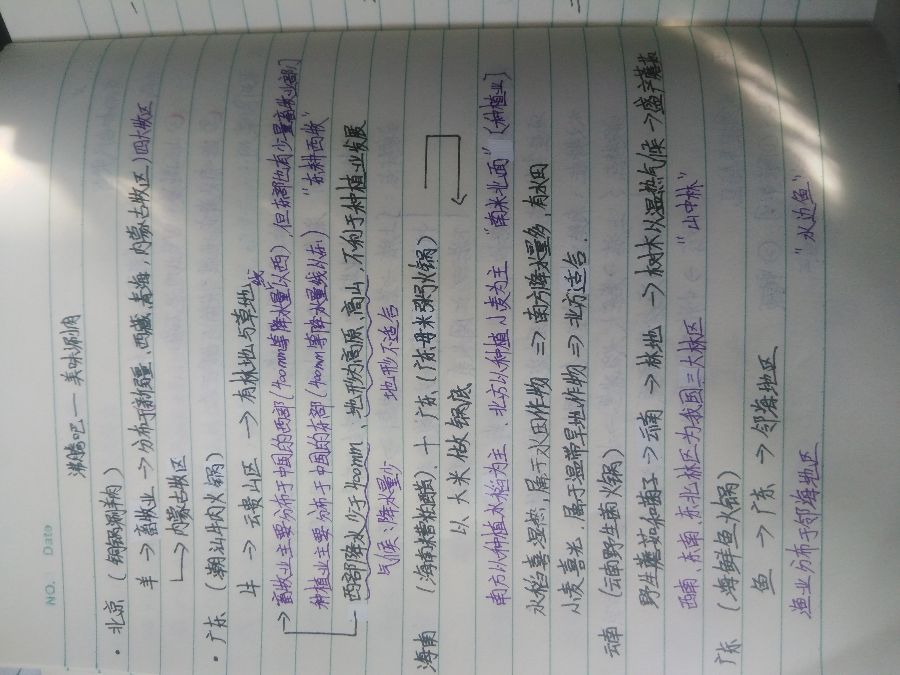 NO. Date
沸腾吧 — 美味涮肉
· 北京 (铜锅涮羊肉)
羊 → 畜牧业 → 分布于新疆、西藏、青海、内蒙古牧区) 四大牧区
↳ 内蒙古牧区
· 广东 (潮汕牛肉火锅)
牛 → 云贵山区 → 有林地与草地
→ 畜牧业主要分布于中国的西部 (400mm等降水量线以西), 但东部也有少量畜牧业
种植业主要分布于中国的东部 (400mm等降水量线以东) "东耕西牧"
西部降水少于400mm、地形为高原、高山, 不利于种植业发展
气候: 降水量少 地形不适合
海南 (海南糟粕醋) + 广东 (广东丹米粥火锅)
以大米做锅底
南方以种植水稻为主, 北方以种植小麦为主 "南米北面" (种植业)
水稻喜湿热, 属于水田作物 ⇒ 南方降水量多, 有水田
小麦喜光, 属于温带旱地作物 ⇒ 北方适合.
云南 (云南野生菌火锅)
野生蘑菇和菌子 → 云南 → 林地 → 树木以湿热气候 → 盛产蘑菇
西南、东南、东北林区为我国三大林区 "山中林"
广东 (海鲜鱼火锅)
鱼 → 广东 → 邻海地区
渔业分布于邻海地区 "水边鱼"